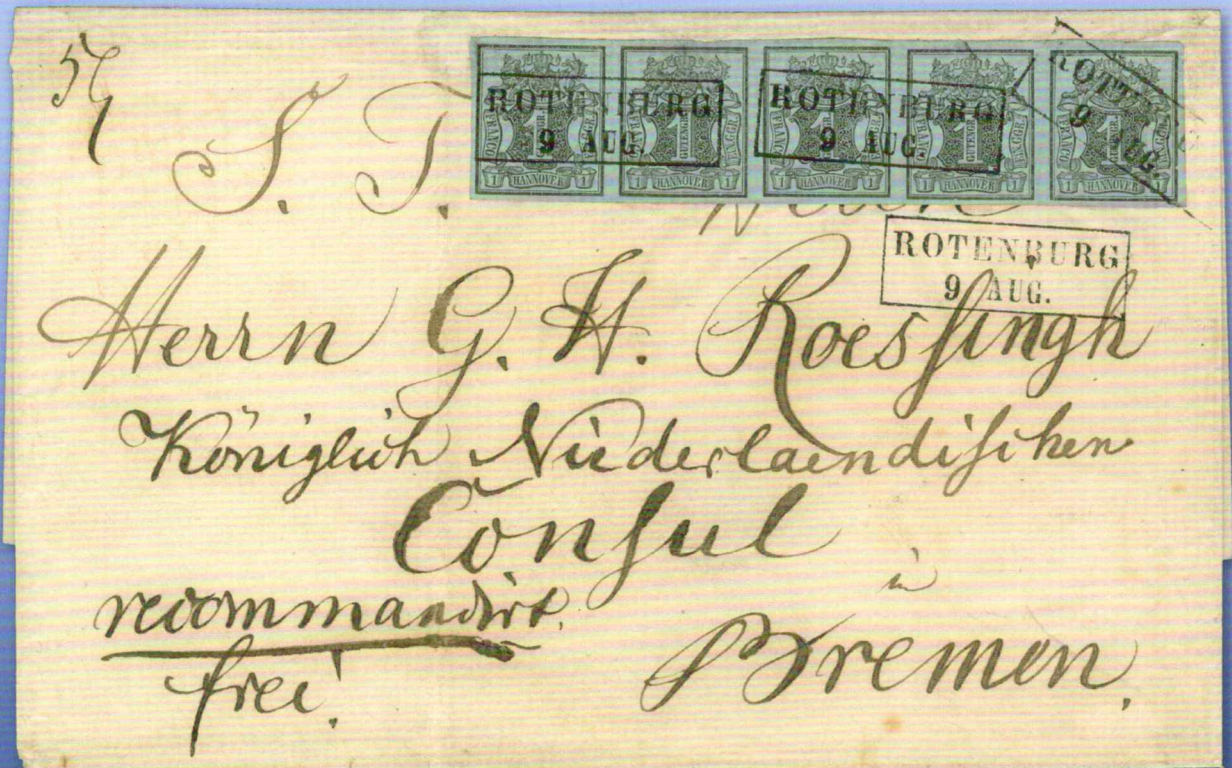 S. T.
ROTENBURG
9 AUG.
ROTENBURG
9 AUG.
9 AUG.
1 HANNOVER 1
1 HANNOVER 1
1 HANNOVER 1
1 HANNOVER 1
1 HANNOVER 1
ROTENBURG
9 AUG.
Herrn G. H. Roessingh
Königlich Niederlaendischen
Consul
in
recommandirt.
Bremen.
frei.